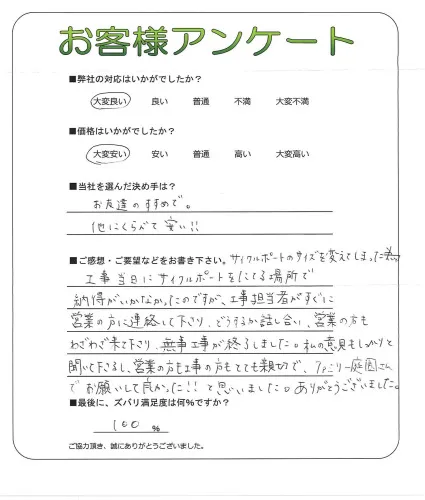 お客様アンケート
■弊社の対応はいかがでしたか?
大変良い 良い 普通 不満 大変不満
■価格はいかがでしたか?
大変安い 安い 普通 高い 大変高い
■当社を選んだ決め手は?
お友達のすすめで。
他にくらべて安い!!
■ご感想・ご要望などをお書き下さい。サイクルポートのサイズを変えてしまった為
工事当日にサイクルポートをたてる場所で
納得がいかなかったのですが、工事担当者がすぐに
営業の方に連絡して下り、どうするか話し合い、営業の方も
わざわざ来て下り、無事工事が終了しました。私の意見もしっかりと
聞いて下さるし、営業の方も工事の方もとても親切で、ファミリー庭園さん
でお願いして良かった!!と思いました。ありがとうございました。
■最後に、ズバリ満足度は何%ですか?
100 %
ご協力頂き、誠にありがとうございました。